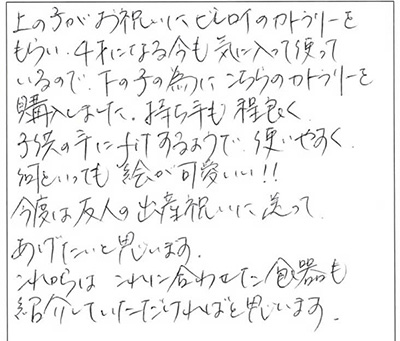 上の子がお祝いにビレロイのカトラリーを
もらい、4才になる今も気に入って使って
いるので、下の子の為にこちらのカトラリーを
購入しました。持ち手も程良く
子供の手に するようで、使いやすく
何といっても絵が可愛いい!!
今度は友人の出産祝いに送って
あげたいと思います。
これからは これに合わせた食器も
紹介していただければと思います。